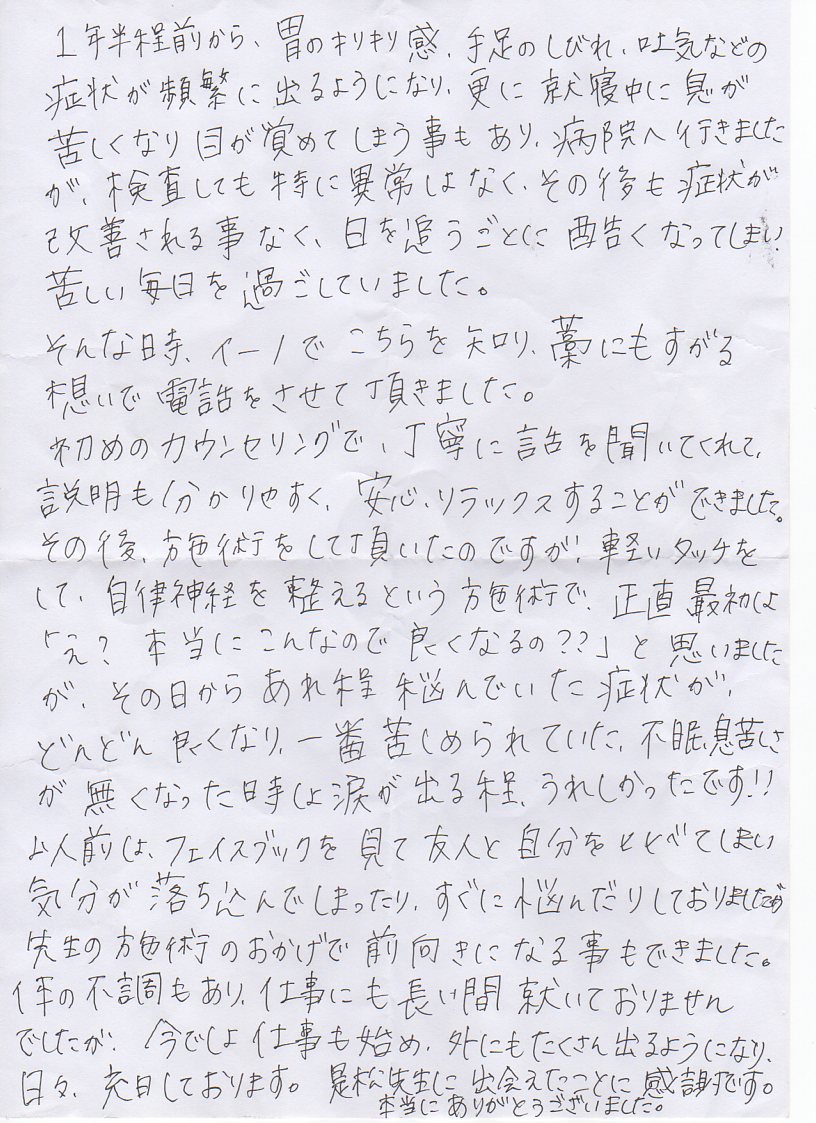 1年半程前から、胃のキリキリ感、手足のしびれ、吐気などの
症状が頻繁に出るようになり、更に就寝中に息が
苦しくなり目が覚めてしまう事もあり、病院へ行きました
が、検査しても特に異常はなく、その後も症状が
改善される事なく、日を追うごとに酷くなってしまい
苦しい毎日を過ごしていました。
そんな時、イーノでこちらを知り、藁にもすがる
想いで電話をさせて頂きました。
初めのカウンセリングで、丁寧に話を聞いてくれて、
説明も分かりやすく、安心、リラックスすることができました。
その後、施術をして頂いたのですが、軽いタッチを
して、自律神経を整えるという施術で、正直最初は
「え？本当にこんなので良くなるの？？」と思いました
が、その日からあれ程悩んでいた症状が、
どんどん良くなり、一番苦しめられていた、不眠、息苦しさ
が無くなった時は涙が出る程、うれしかったです!!
以前は、フェイスブックを見て友人と自分をくらべてしまい
気分が落ち込んでしまったり、すぐに悩んだりしておりましたが
先生の施術のおかげで前向きになる事もできました。
体の不調もあり、仕事にも長い間就いておりません
でしたが、今では仕事も始め、外にもたくさん出るようになり、
日々、充日しております。是松先生に出会えたことに感謝です。
本当にありがとうございました。